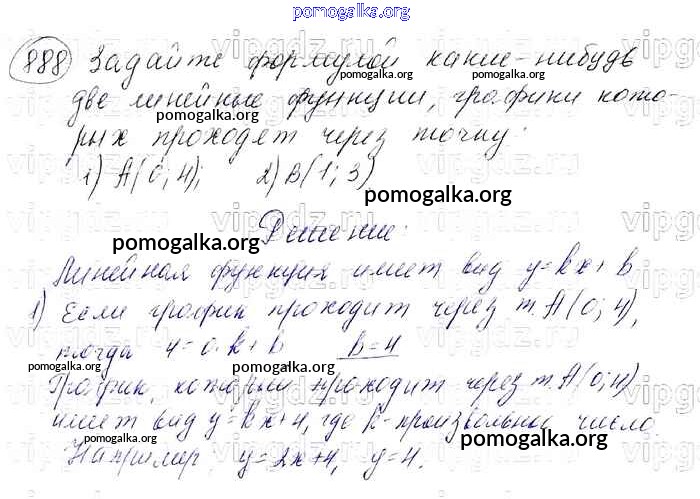 pomogalka.org
888 Задайте формулой какие-нибудь
pomogalka.org
две линейные функции, графики кото-
pomogalka.org
рых проходят через точку:
1) А(0; 4); 2) В(1; 3)
pomogalka.org
pomogalka.org
Решение:
Линейная функция имеет вид y=kx+в
1) Если график проходит через т. А(0; 4),
pomogalka.org
тогда 4=0·k+в в=4
pomogalka.org
pomogalka.org
График, который проходит через т. А(0; 4)
имеет вид y=kx+4, где k-произвольное число.
pomogalka.org
pomogalka.org
Например: y=2x+4, y=4.